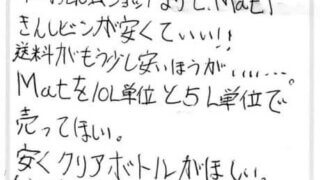 ショップより、Matの
きんしビンが安くていい!!
送料がもう少し安いほうが、、、、、、。
Matを10L単位と5L単位で
売ってほしい。
安くクリアボトルがほしい。